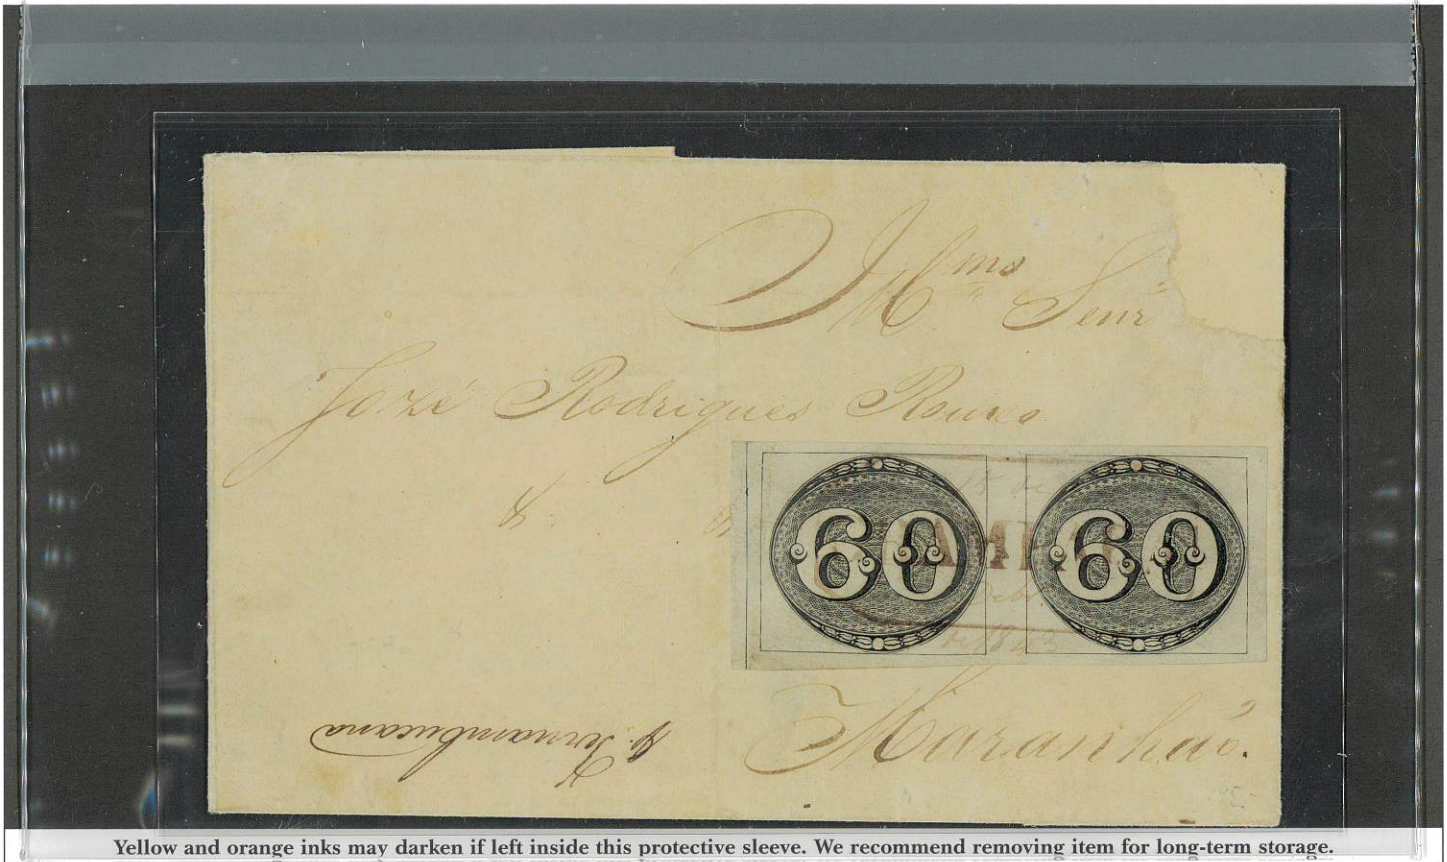 Illmo Senr
José Rodrigues Rouxo
&
60 60
1843
Maranhão.
p. Pernambucana
Yellow and orange inks may darken if left inside this protective sleeve. We recommend removing item for long-term storage.